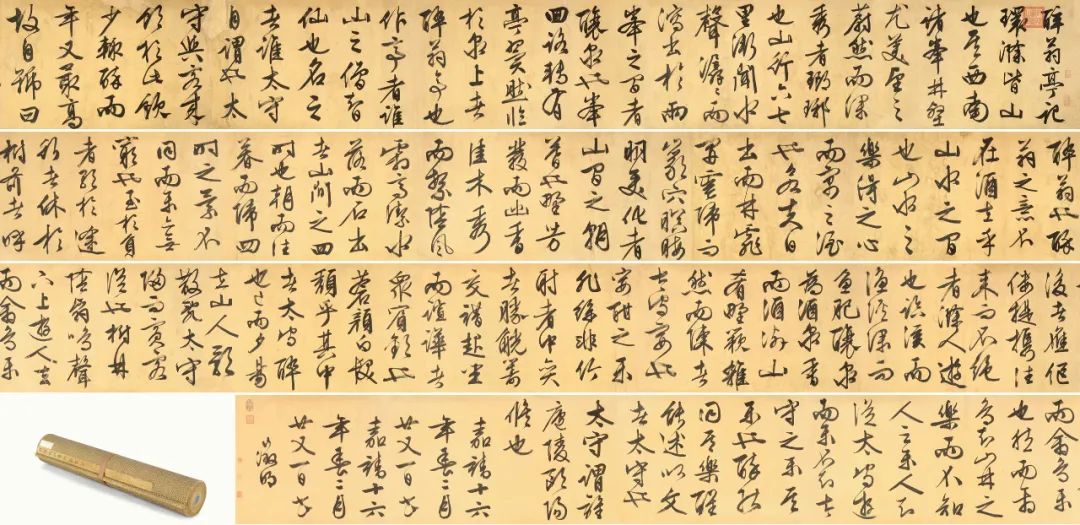 醉翁亭記
環滁皆山
也其西南
諸峯林壑
尤美望之
蔚然而深
秀者瑯琊
也山行六七
里漸聞水
聲潺潺而
瀉出於兩
峯之間者
釀泉也峯
回路轉有
亭翼然臨
於泉上者
醉翁亭也
作亭者誰
山之僧智
仙也名之
者誰太守
自謂也太
守與客來
飲於此飲
少輒醉而
年又最高
故自號曰
醉翁也醉
翁之意不
在酒在乎
山水之間
也山水之
樂得之心
而寓之酒
也若夫日
出而林霏
開雲歸而
巖穴暝晦
明變化者
山間之朝
暮也野芳
發而幽香
佳木秀
而繁陰風
霜高潔水
落而石出
者山間之四
時也朝而往
暮而歸四
時之景不
同而樂亦無
窮也至於負
者歌於塗
行者休於
樹前者呼
後者應傴
僂提攜往
來而不絕
者滁人遊
也臨溪而
漁溪深而
魚肥釀泉
為酒泉香
而酒洌山
肴野蔌雜
然而陳者
太守宴也
宴酣之樂
非絲非竹
射者中奕
者勝觥籌
交錯起坐
而諠譁者
衆賓歡也
蒼顏白髮
頹乎其中
者太守醉
也已而夕陽
在山人影
散亂太守
歸而賓客
從也樹林
陰翳鳴聲
上下遊人去
而禽鳥樂
而禽鳥樂
也然而禽
鳥知山林之
樂而不知
人之樂人知
從太守遊
而樂不知太
守之樂其
樂也醉能
同其樂醒
能述以文
者太守也
太守謂誰
廬陵歐陽
修也
嘉靖十六
年春二月
廿又一日書
嘉靖十六
年春二月
廿又一日書
徵明